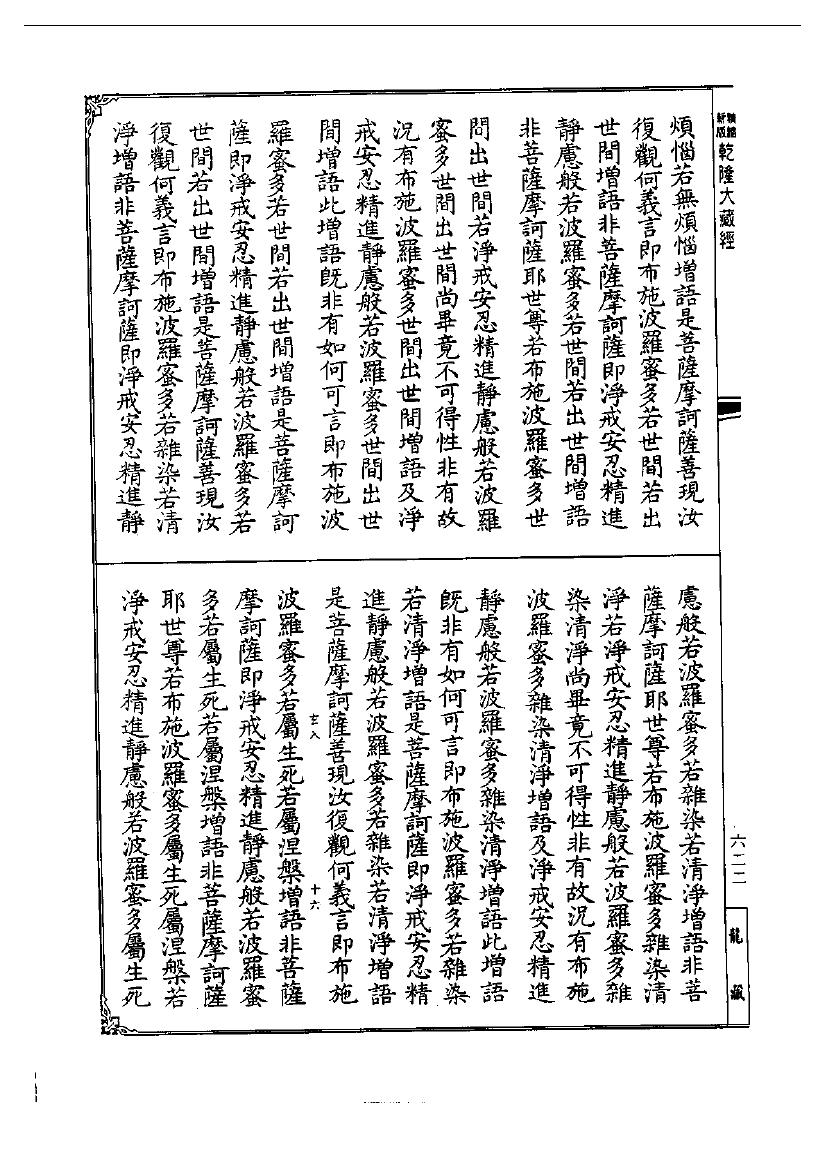 新版
乾隆大藏經
煩惱若無煩惱增語是菩薩摩訶薩善現汝
復觀何義言即布施波羅蜜多若世間若出
世間增語非菩薩摩訶薩即淨戒安忍精進
靜慮般若波羅蜜多若世間若出世間增語
非菩薩摩訶薩耶世尊若布施波羅蜜多世
間出世間若淨戒安忍精進靜慮般若波羅
蜜多世間出世間尚畢竟不可得性非有故
況有布施波羅蜜多世間出世間增語及淨
戒安忍精進靜慮般若波羅蜜多世間出世
間增語此增語既非有如何可言即布施波
羅蜜多若世間若出世間增語是菩薩摩訶
薩即淨戒安忍精進靜慮般若波羅蜜多若
世間若出世間增語是菩薩摩訶薩善現汝
復觀何義言即布施波羅蜜多若雜染若清
淨增語非菩薩摩訶薩即淨戒安忍精進靜
慮般若波羅蜜多若雜染若清淨增語非菩
薩摩訶薩耶世尊若布施波羅蜜多雜染清
淨若淨戒安忍精進靜慮般若波羅蜜多雜
染清淨尚畢竟不可得性非有故況有布施
波羅蜜多雜染清淨增語及淨戒安忍精進
靜慮般若波羅蜜多雜染清淨增語此增語
既非有如何可言即布施波羅蜜多若雜染
若清淨增語是菩薩摩訶薩即淨戒安忍精
進靜慮般若波羅蜜多若雜染若清淨增語
是菩薩摩訶薩善現汝復觀何義言即布施
玄八 十六
波羅蜜多若屬生死若屬涅槃增語非菩薩
摩訶薩即淨戒安忍精進靜慮般若波羅蜜
多若屬生死若屬涅槃增語非菩薩摩訶薩
耶世尊若布施波羅蜜多屬生死屬涅槃若
淨戒安忍精進靜慮般若波羅蜜多屬生死
六二二
龍藏